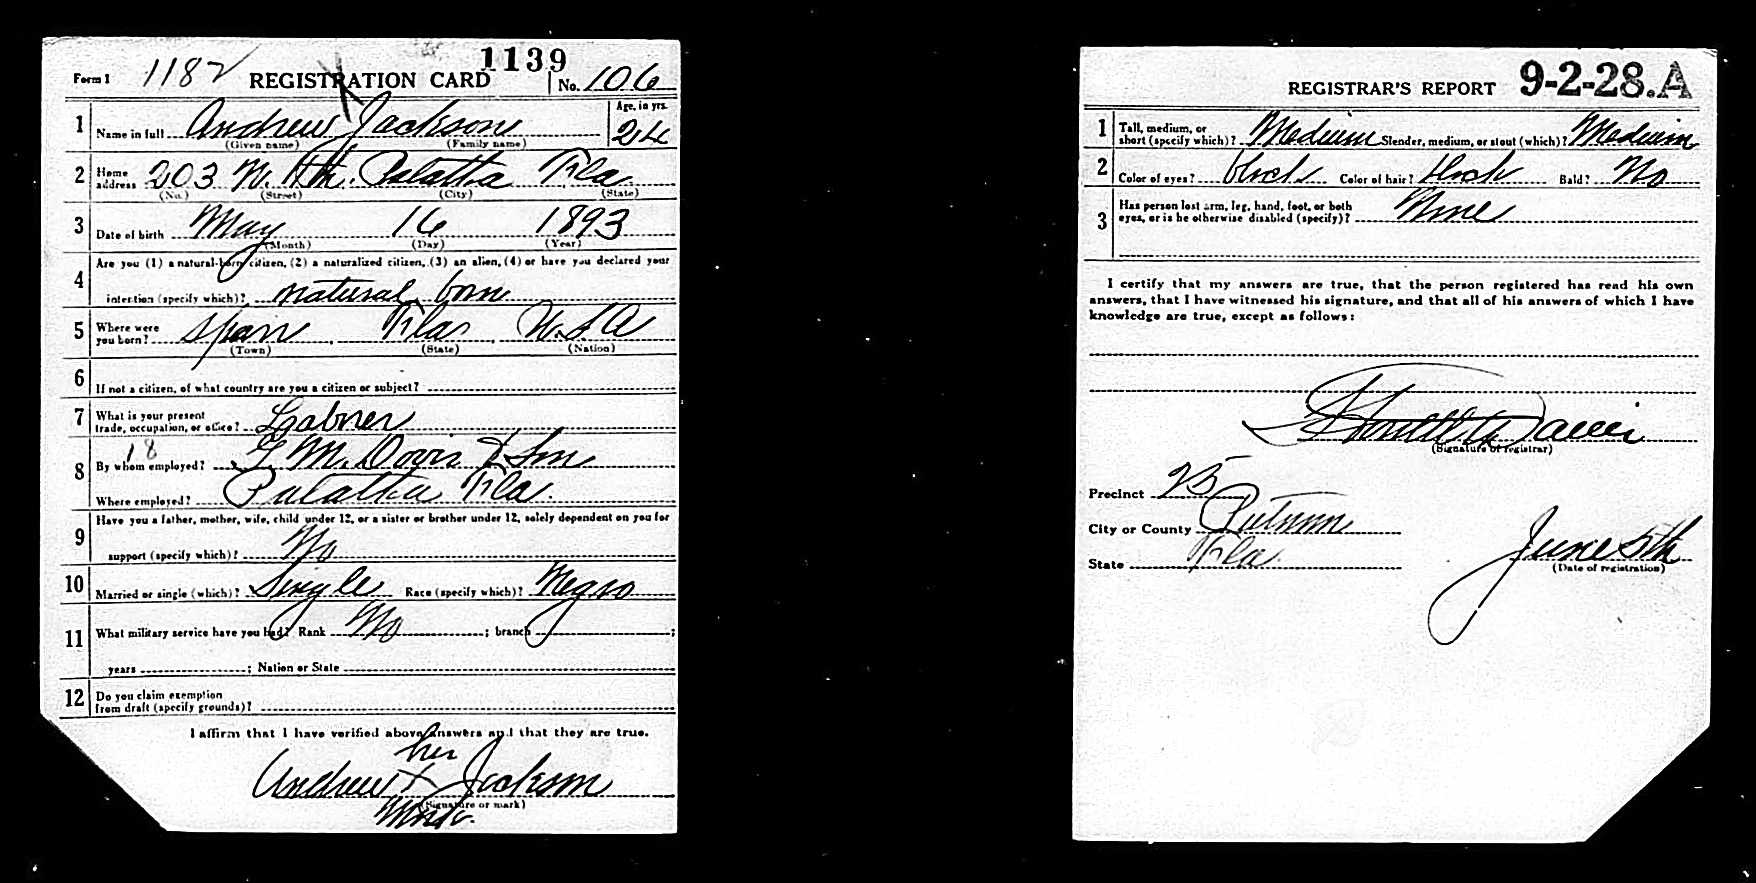 1139
Form 1 1182 REGISTRATION CARD No. 106
1 Name in full Andrew Jackson Age, in yrs. 24
(Given name) (Family name)
2 Home address 203 N. 8th. Palatka Fla.
(No.) (Street) (City) (State)
3 Date of birth May 16 1893
(Month) (Day) (Year)
4 Are you (1) a natural-born citizen, (2) a naturalized citizen, (3) an alien, (4) or have you declared your
intention (specify which)? natural born
5 Where were you born? Fla. U.S.A
(Town) (State) (Nation)
6 If not a citizen, of what country are you a citizen or subject?
7 What is your present trade, occupation, or office? Labner
18
8 By whom employed? G. M. Davis & Son
Where employed? Palatka Fla.
9 Have you a father, mother, wife, child under 12, or a sister or brother under 12, solely dependent on you for
support (specify which)? No
10 Married or single (which)? Single Race (specify which)? Negro
11 What military service have you had? Rank No ; branch ;
years ; Nation or State
12 Do you claim exemption from draft (specify grounds)?
I affirm that I have verified above answers and that they are true.
his
Andrew X Jackson
(Signature or mark)
Mark.
REGISTRAR'S REPORT 9-2-28.A
1 Tall, medium, or short (specify which)? Medium Slender, medium, or stout (which)? Medium
2 Color of eyes? black Color of hair? black Bald? No
3 Has person lost arm, leg, hand, foot, or both eyes, or is he otherwise disabled (specify)? None
I certify that my answers are true, that the person registered has read his own
answers, that I have witnessed his signature, and that all of his answers of which I have
knowledge are true, except as follows:
Davis
(Signature of registrar)
Precinct 25
City or County Putnam
State Fla. June 5th
(Date of registration)